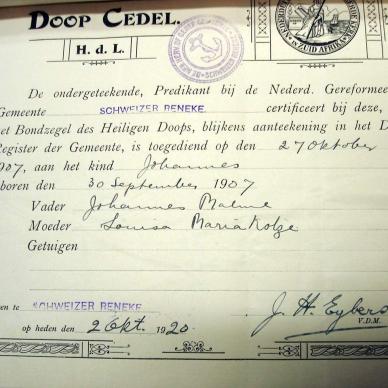 DOOP CEDEL.
H. d. L.
IN ZUID AFRIKA
De ondergeteekende, Predikant bij de Nederd. Gereformee
Gemeente SCHWEIZER RENEKE. certificeert bij deze,
et Bondzegel des Heiligen Doops, blijkens aanteekening in het D
Register der Gemeente, is toegediend op den 27 Oktober
1907, aan het kind Johannes
boren den 30 September 1907
Vader Johannes
Moeder Louisa Maria Kotze
Getuigen
en te SCHWEIZER RENEKE
op heden den 2 Okt. 1920.
J. H. Eybers
V.D.M.